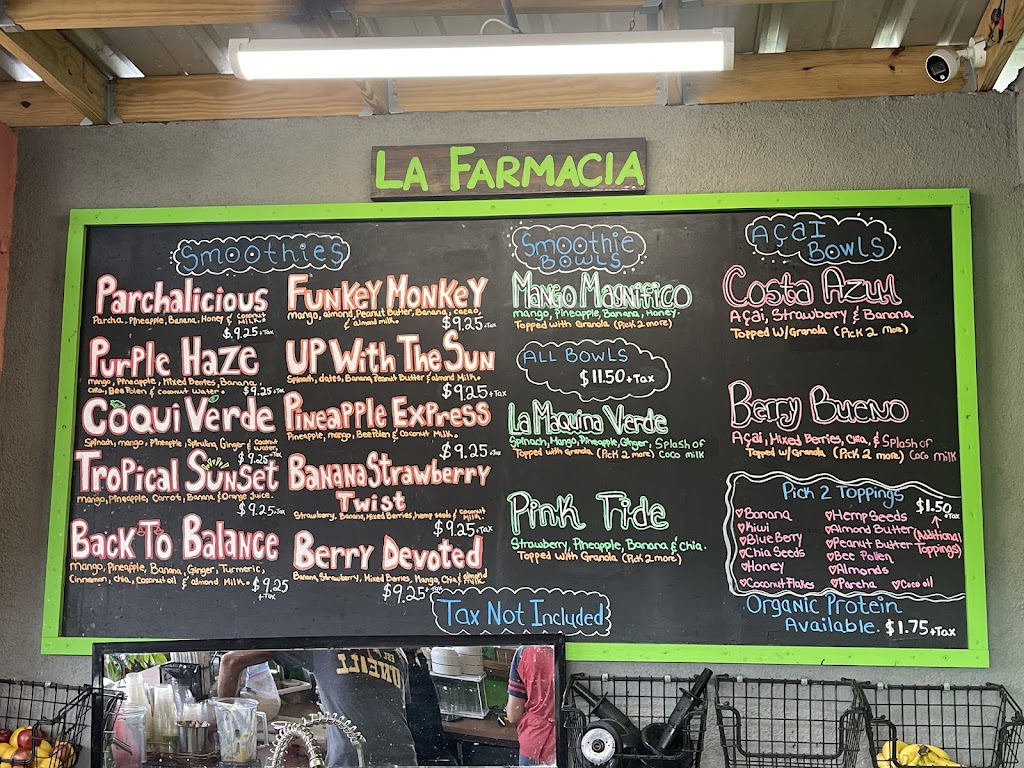 LA FARMACIA
Smoothies
Parchalicious
Parcha, Pineapple, Banana, Honey & Coconut Milk.
$9.25+Tax
Purple Haze
mango, Pineapple, Mixed Berries, Banana,
Chia, Bee Polen & Coconut Water.
$9.25+Tax
Coqui Verde
Spinach, mango, Pineapple, Spirulina, Ginger & Coconut Water.
$9.25+Tax
Tropical Sunset
mango, Pineapple, Carrot, Banana & Orange Juice.
$9.25+Tax
Back To Balance
mango, Pineapple, Banana, Ginger, Turmeric,
Cinnamon, chia, Coconut oil & almond Milk.
$9.25
+Tax
Funkey Monkey
mango, almond, Peanut Butter, Banana, cacao,
& almond milk.
$9.25+Tax
Up With The Sun
Spinach, dates, Banana, Peanut Butter & almond Milk.
$9.25+Tax
Pineapple Express
Pineapple, mango, Bee Polen & Coconut Milk.
$9.25+Tax
Banana Strawberry
Twist
Strawberry, Banana, Mixed Berries, hemp seeds & coconut Milk.
$9.25+Tax
Berry Devoted
Banana, Strawberry, Mixed Berries, Mango, Chia & almond Milk.
$9.25+Tax
Smoothie
Bowls
Mango Magnifico
mango, Pineapple, Banana, Honey.
Topped with Granola (Pick 2 more)
All Bowls
$11.50+Tax
La Maquina Verde
Spinach, Mango, Pineapple, Ginger, Splash of
Topped with Granola (Pick 2 more) Coco milk
Pink Tide
Strawberry, Pineapple, Banana & Chia.
Topped with Granola (Pick 2 more)
Tax Not Included
Açaí
Bowls
Costa Azul
Açaí, Strawberry & Banana
Topped w/Granola (Pick 2 more)
Berry Bueno
Açaí, Mixed Berries, Chia, & Splash of
Topped w/Granola (Pick 2 more) Coco milk
Pick 2 Toppings
$1.50+Tax
(Additional Toppings)
Banana
Kiwi
Blue Berry
Chia Seeds
Honey
Coconut Flakes
Hemp Seeds
Almond Butter
Peanut Butter
Bee Pollen
Almonds
Parcha
Coco oil
Organic Protein
Available. $1.75+Tax
O'NEILL